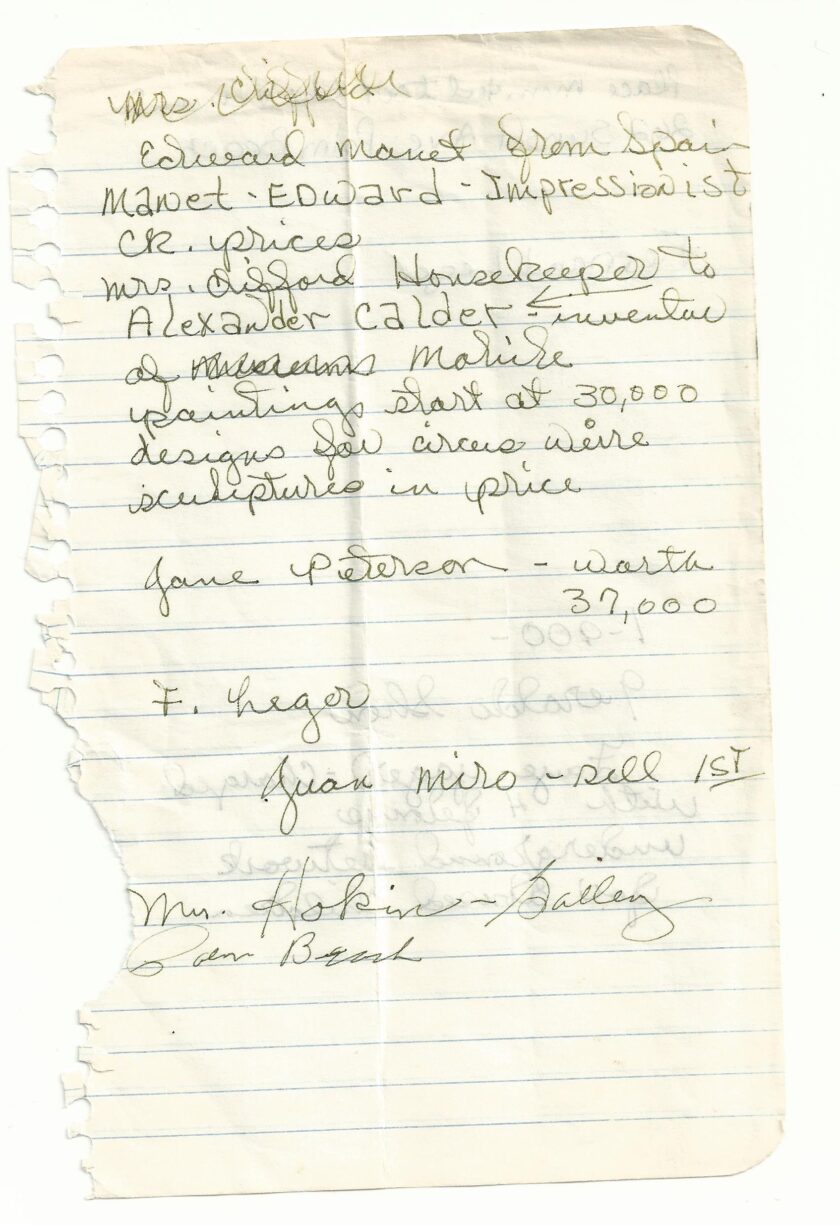 Mrs. Clifford
Edward Manet from Spain
Manet - EDward - Impressionist
CK. prices
Mrs. Clifford Housekeeper to
Alexander Calder ← inventor
of Mobile
paintings start at 30,000
designs for circus we're
sculptures in price
Jane Peterson - worth
37,000
F. Leger
Juan Miro - sell 1ST
Mrs. Hokin - Galley
Palm Beach